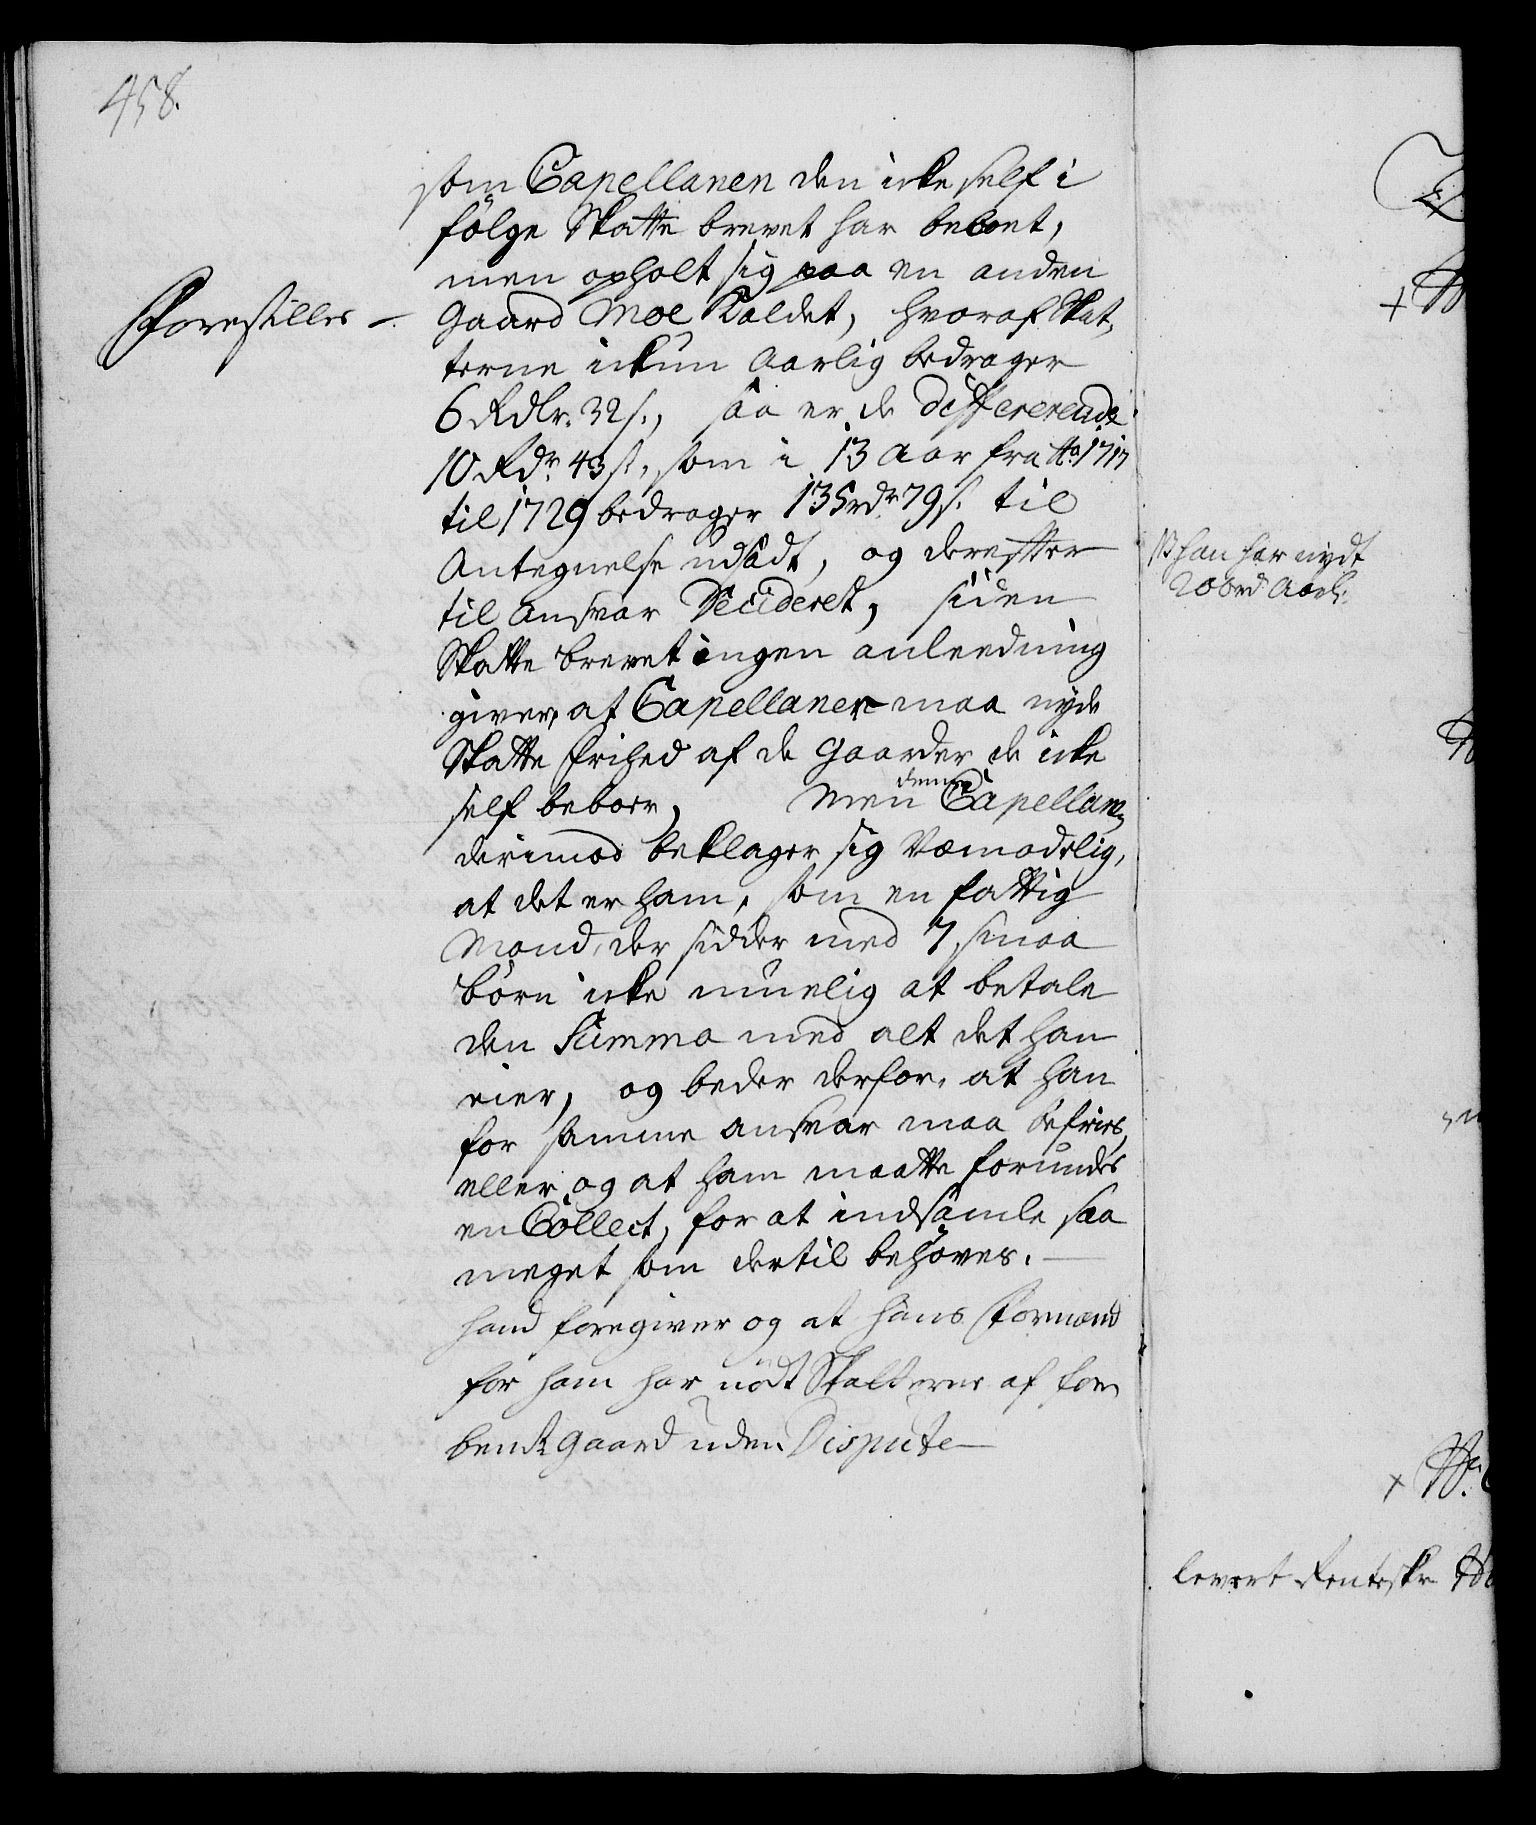 458.
som Capellanen den icke self i
fölge Skatte brevet har beboet,
men opholt sig paa en anden
Forestilles –
Gaard Moe kaldet, hvoraf Skat,
terne ickun aarlig bedrager
6 Rdlr. 32 s., saa er de differerende
10 Rdr. 43 s., som i 13 aar fra Ao. 1717
til 1729 bedrager 135 rdr 79 s. til
Antegnelse udsadt, og derefter
til ansvar Decideret, siden
Skatte brevet ingen anleedning
giver, at Capellaner maa nyde
Skatte frihed af de Gaarder de icke
self beboer, Men denne Capellan,
derimod beklager sig Vemodelig,
at det er ham, som en fattig
Mand, der sidder med 7 smaa
börn icke muelig at betale
den Summa med alt det han
eier, og beder derfor, at han
for samme ansvar maa befries,
eller og at ham maatte forundes
en Collect, for at indsamle saa
meget som dertil behöves. –
hand foregiver og at hans Formænd
för ham har nödt Skatterne af
gaard uden Dispute –
han har nydt
levert Renteskr.